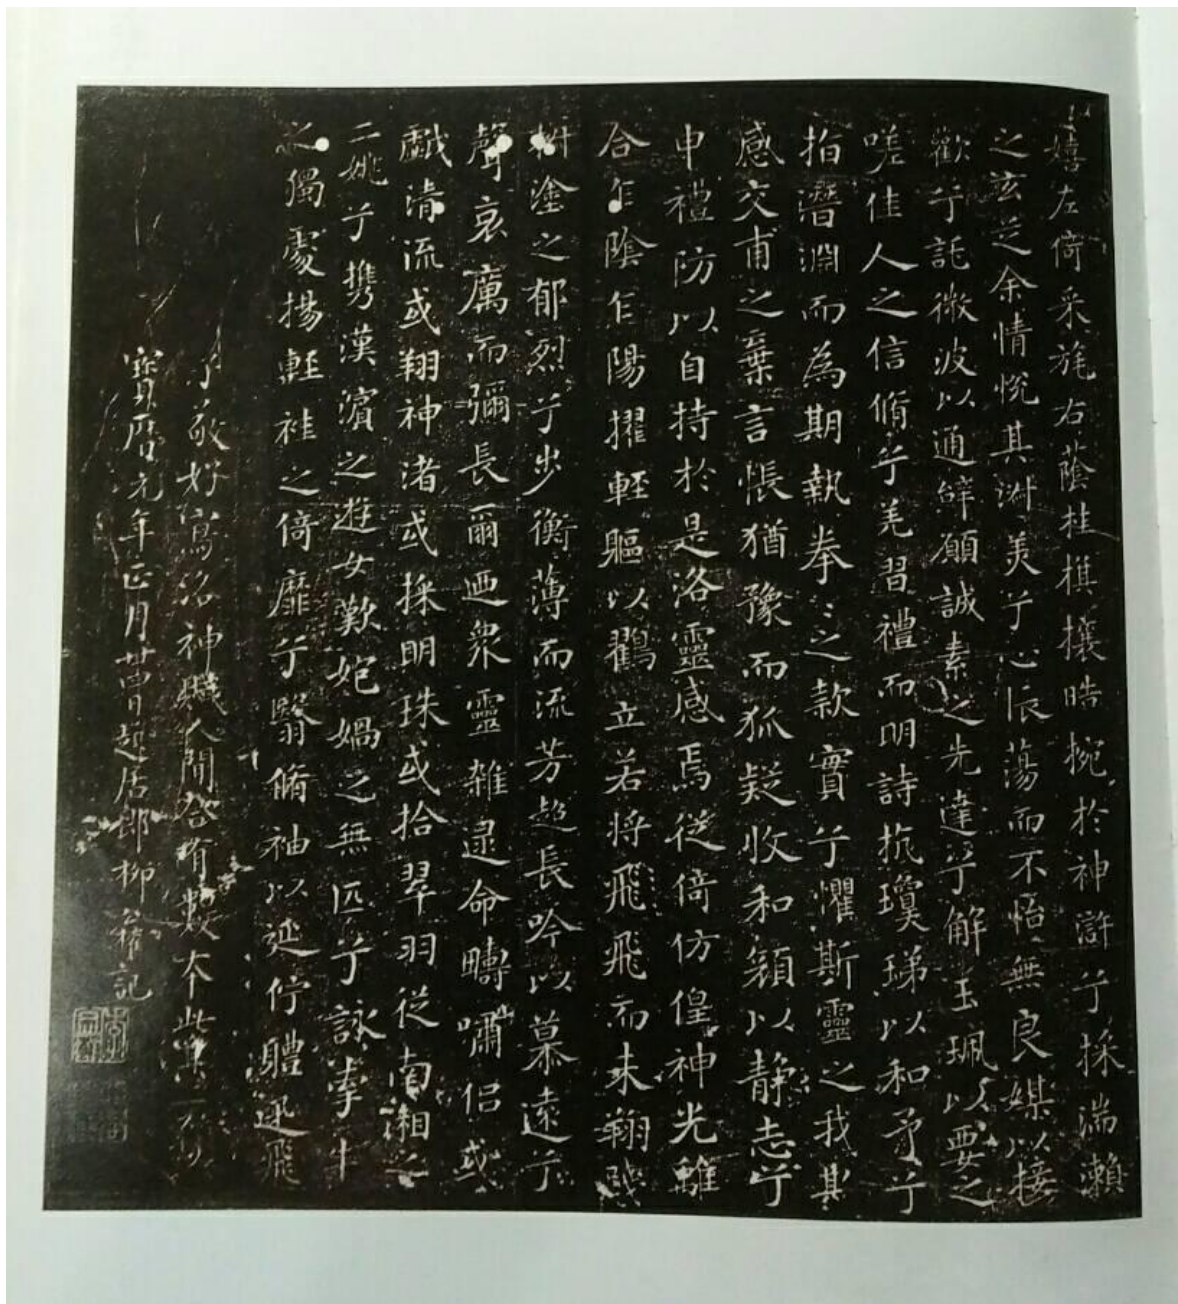 嬉左倚采旄右蔭桂旗攘皓捥於神滸兮採湍瀨
之玄芝余情悅其淑美兮心振蕩而不怡無良媒以接
歡兮託微波以通辭願誠素之先達兮解玉珮以要之
嗟佳人之信脩兮羌習禮而明詩抗瓊珶以和予兮
指潛淵而為期執拳〻之款實兮懼斯靈之我欺
感交甫之棄言悵猶豫而狐疑收和顏以靜志兮
申禮防以自持於是洛靈感焉徙倚仿偟神光離
合乍陰乍陽擢輕軀以鶴立若將飛而未翔踐
椒塗之郁烈兮步衡薄而流芳超長吟以慕遠兮
聲哀厲而彌長爾迺衆靈雜遝命疇嘯侶或
戲清流或翔神渚或採明珠或拾翠羽從南湘之
二姚兮攜漢濱之遊女歎匏媧之無匹兮詠牽牛
之獨處揚輕袿之倚靡兮翳脩袖以延佇體迅飛
子敬好寫洛神賦人間合有數本此其一
寶曆元年正月廿四日起居郎柳公權記